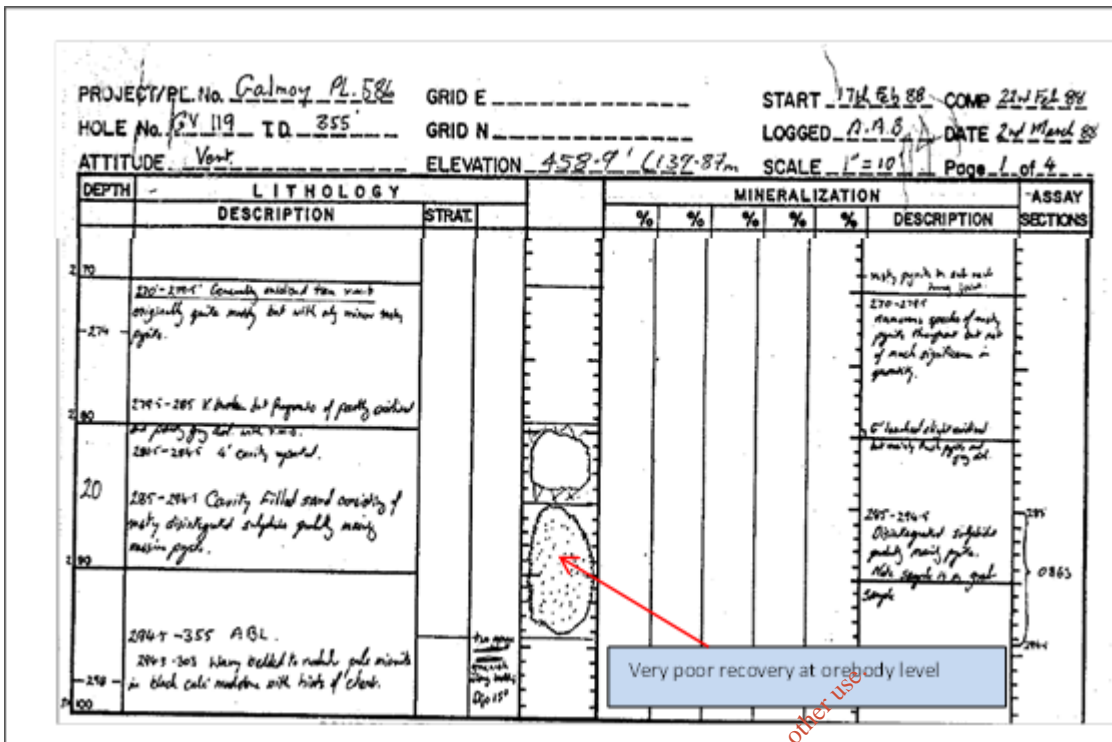 PROJECT/PL. No. Galmoy PL. 586 GRID E START 17th Feb 88 COMP 22nd Feb 88
HOLE No. GV 119 T.D. 355' GRID N LOGGED A.A.B DATE 2nd March 88
ATTITUDE Vert. ELEVATION 458.9' (139.87m SCALE 1" = 10' Page 1 of 4
DEPTH LITHOLOGY MINERALIZATION ASSAY
DESCRIPTION STRAT. % % % % % DESCRIPTION SECTIONS
270
270-279.5 Generally oxidised
originally quite but with only minor
pyrite.
274
279.5-285 V. broken but fragments of partly oxidised
but partly gry dol. with
280.5-284.5 4' cavity reported.
280
20
285-294.5 Cavity filled sand consisting of
disintegrated sulphide probably mainly
massive pyrite.
290
294.5-355 ABL.
294.5-303 Wavy bedded to nodular pale micrite
in black calc mudstone with hints of chert.
298
Dip 15°
270-279.5
Numerous specks of
pyrite throughout but not
of much significance in
quantity.
285-294.5
Disintegrated sulphide
probably mainly pyrite.
Note sample is a grab
sample
285
0863
294.5
Very poor recovery at orebody level
other use.